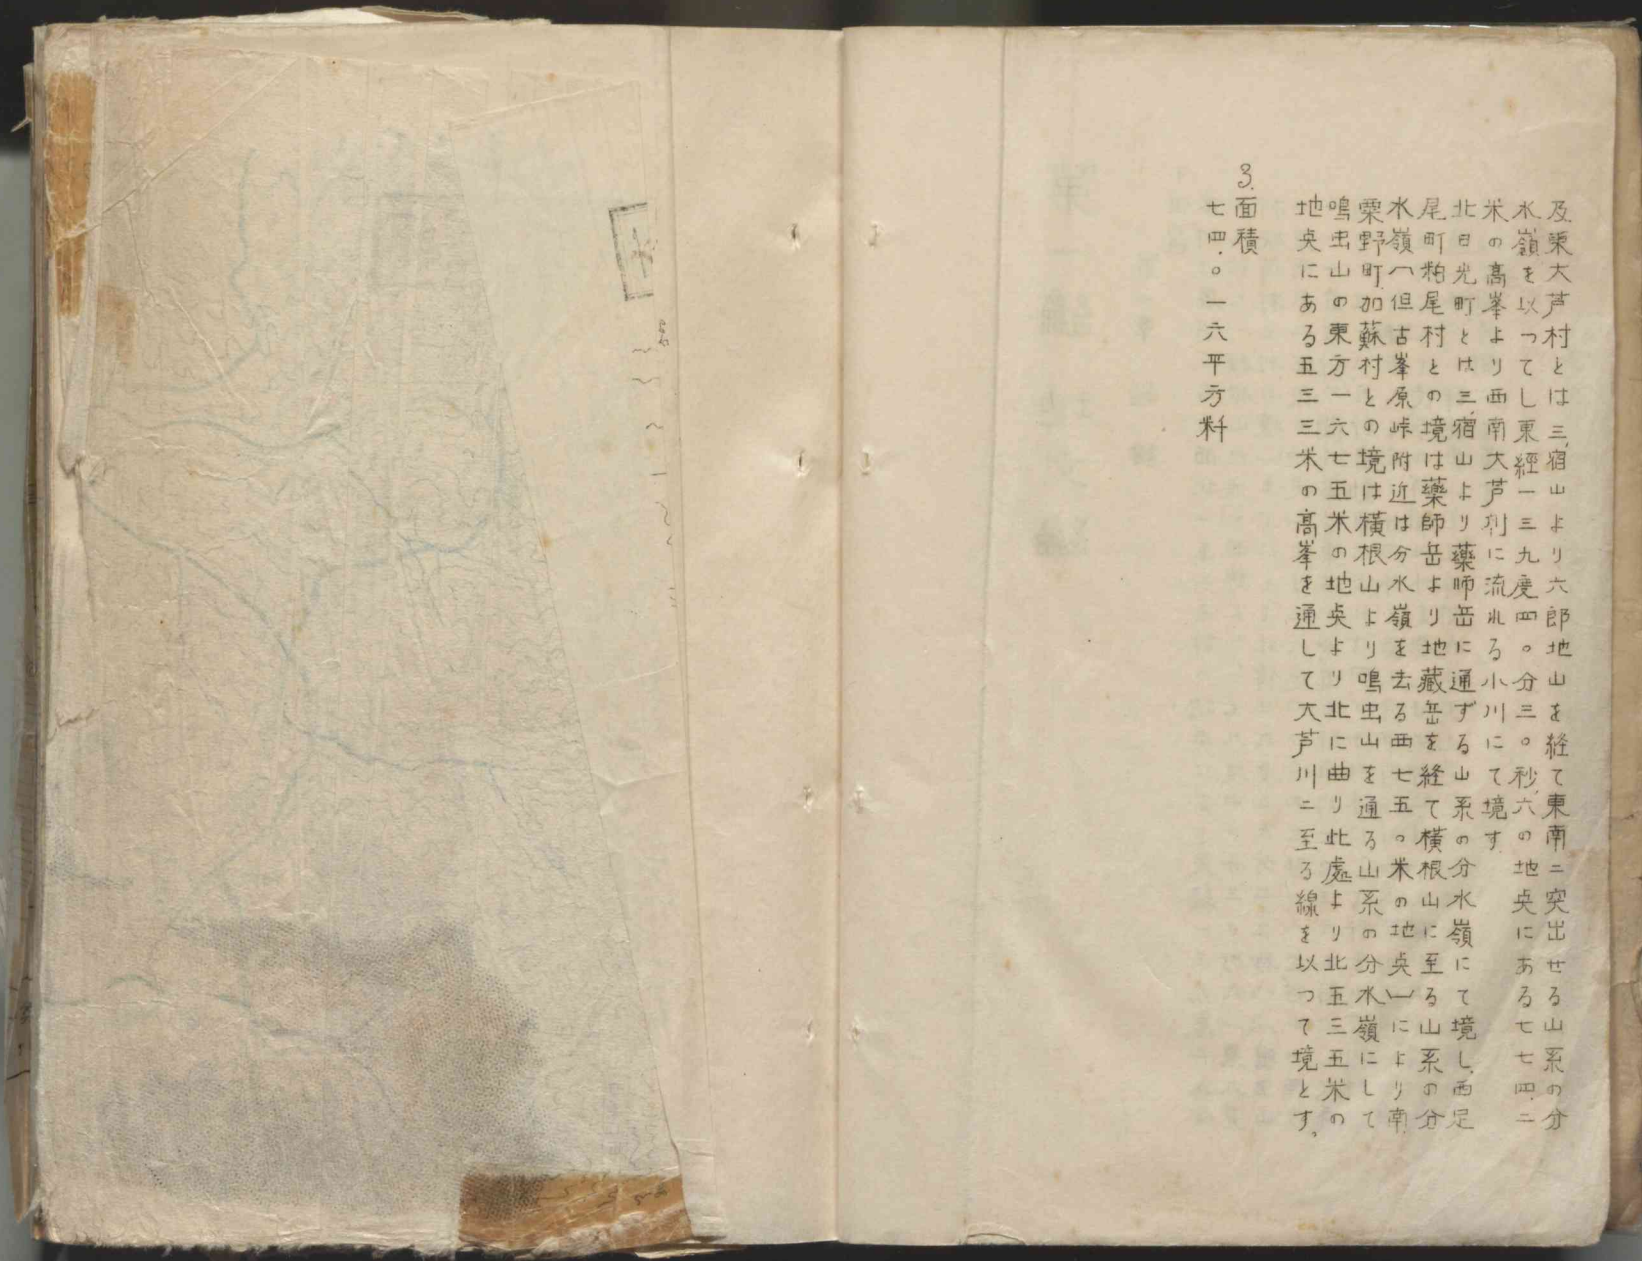 及東大芦村とは三宿山より六郎地山を経て東南ニ突出せる山系の分
水嶺を以つてし東經一三九度四〇分三〇秒六の地奌にある七七四.二
米の高峯より西南大芦川に流れる小川にて境す
北日光町とは三宿山より藥師岳に通ずる山系の分水嶺にて境し西足
尾町粕尾村との境は藥師岳より地藏岳を経て横根山に至る山系の分
水嶺(但古峯原峠附近は分水嶺を去る西七五〇米の地奌)により南
粟野町加蘇村との境は横根山より鳴虫山を通る山系の分水嶺にして
鳴虫山の東方一六七五米の地奌より北に曲り此處より北五三五米の
地奌にある五三三米の高峯を通して大芦川ニ至る線を以つて境とす。
3.面積
七四.〇一六平方粁